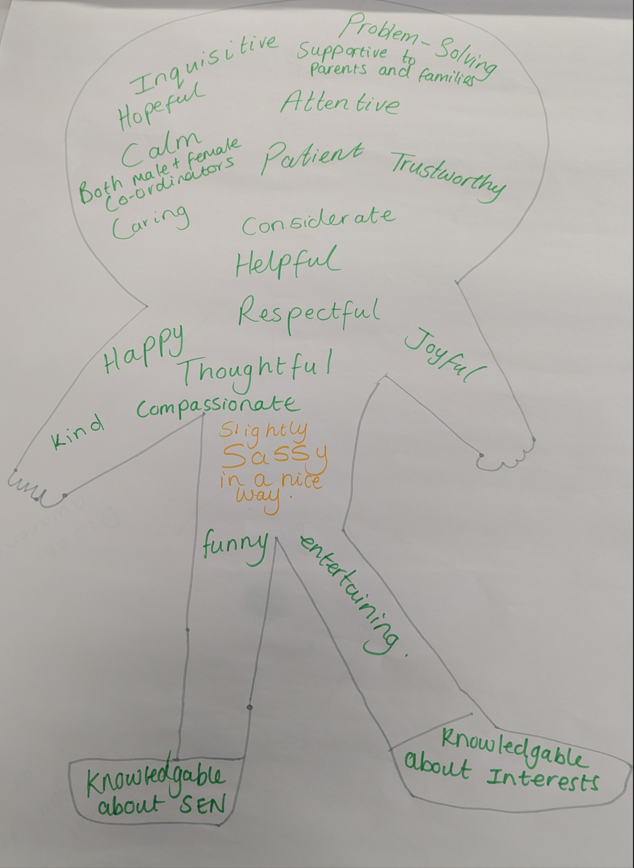 Problem-Solving
Inquisitive
Supportive to
Parents and families
Hopeful
Attentive
Calm
Both male + female
Co-ordinators
Patient
Trustworthy
Caring
Considerate
Helpful
Respectful
Happy
Joyful
Thoughtful
Compassionate
Kind
Slightly
Sassy
in a nice
way.
funny
entertaining.
Knowledgable
about SEN
Knowledgable
about Interests